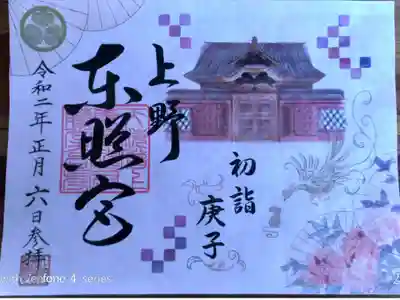 上野
東照宮
初詣
庚子
令和二年正月六日参拝
with Zenfone 4 series